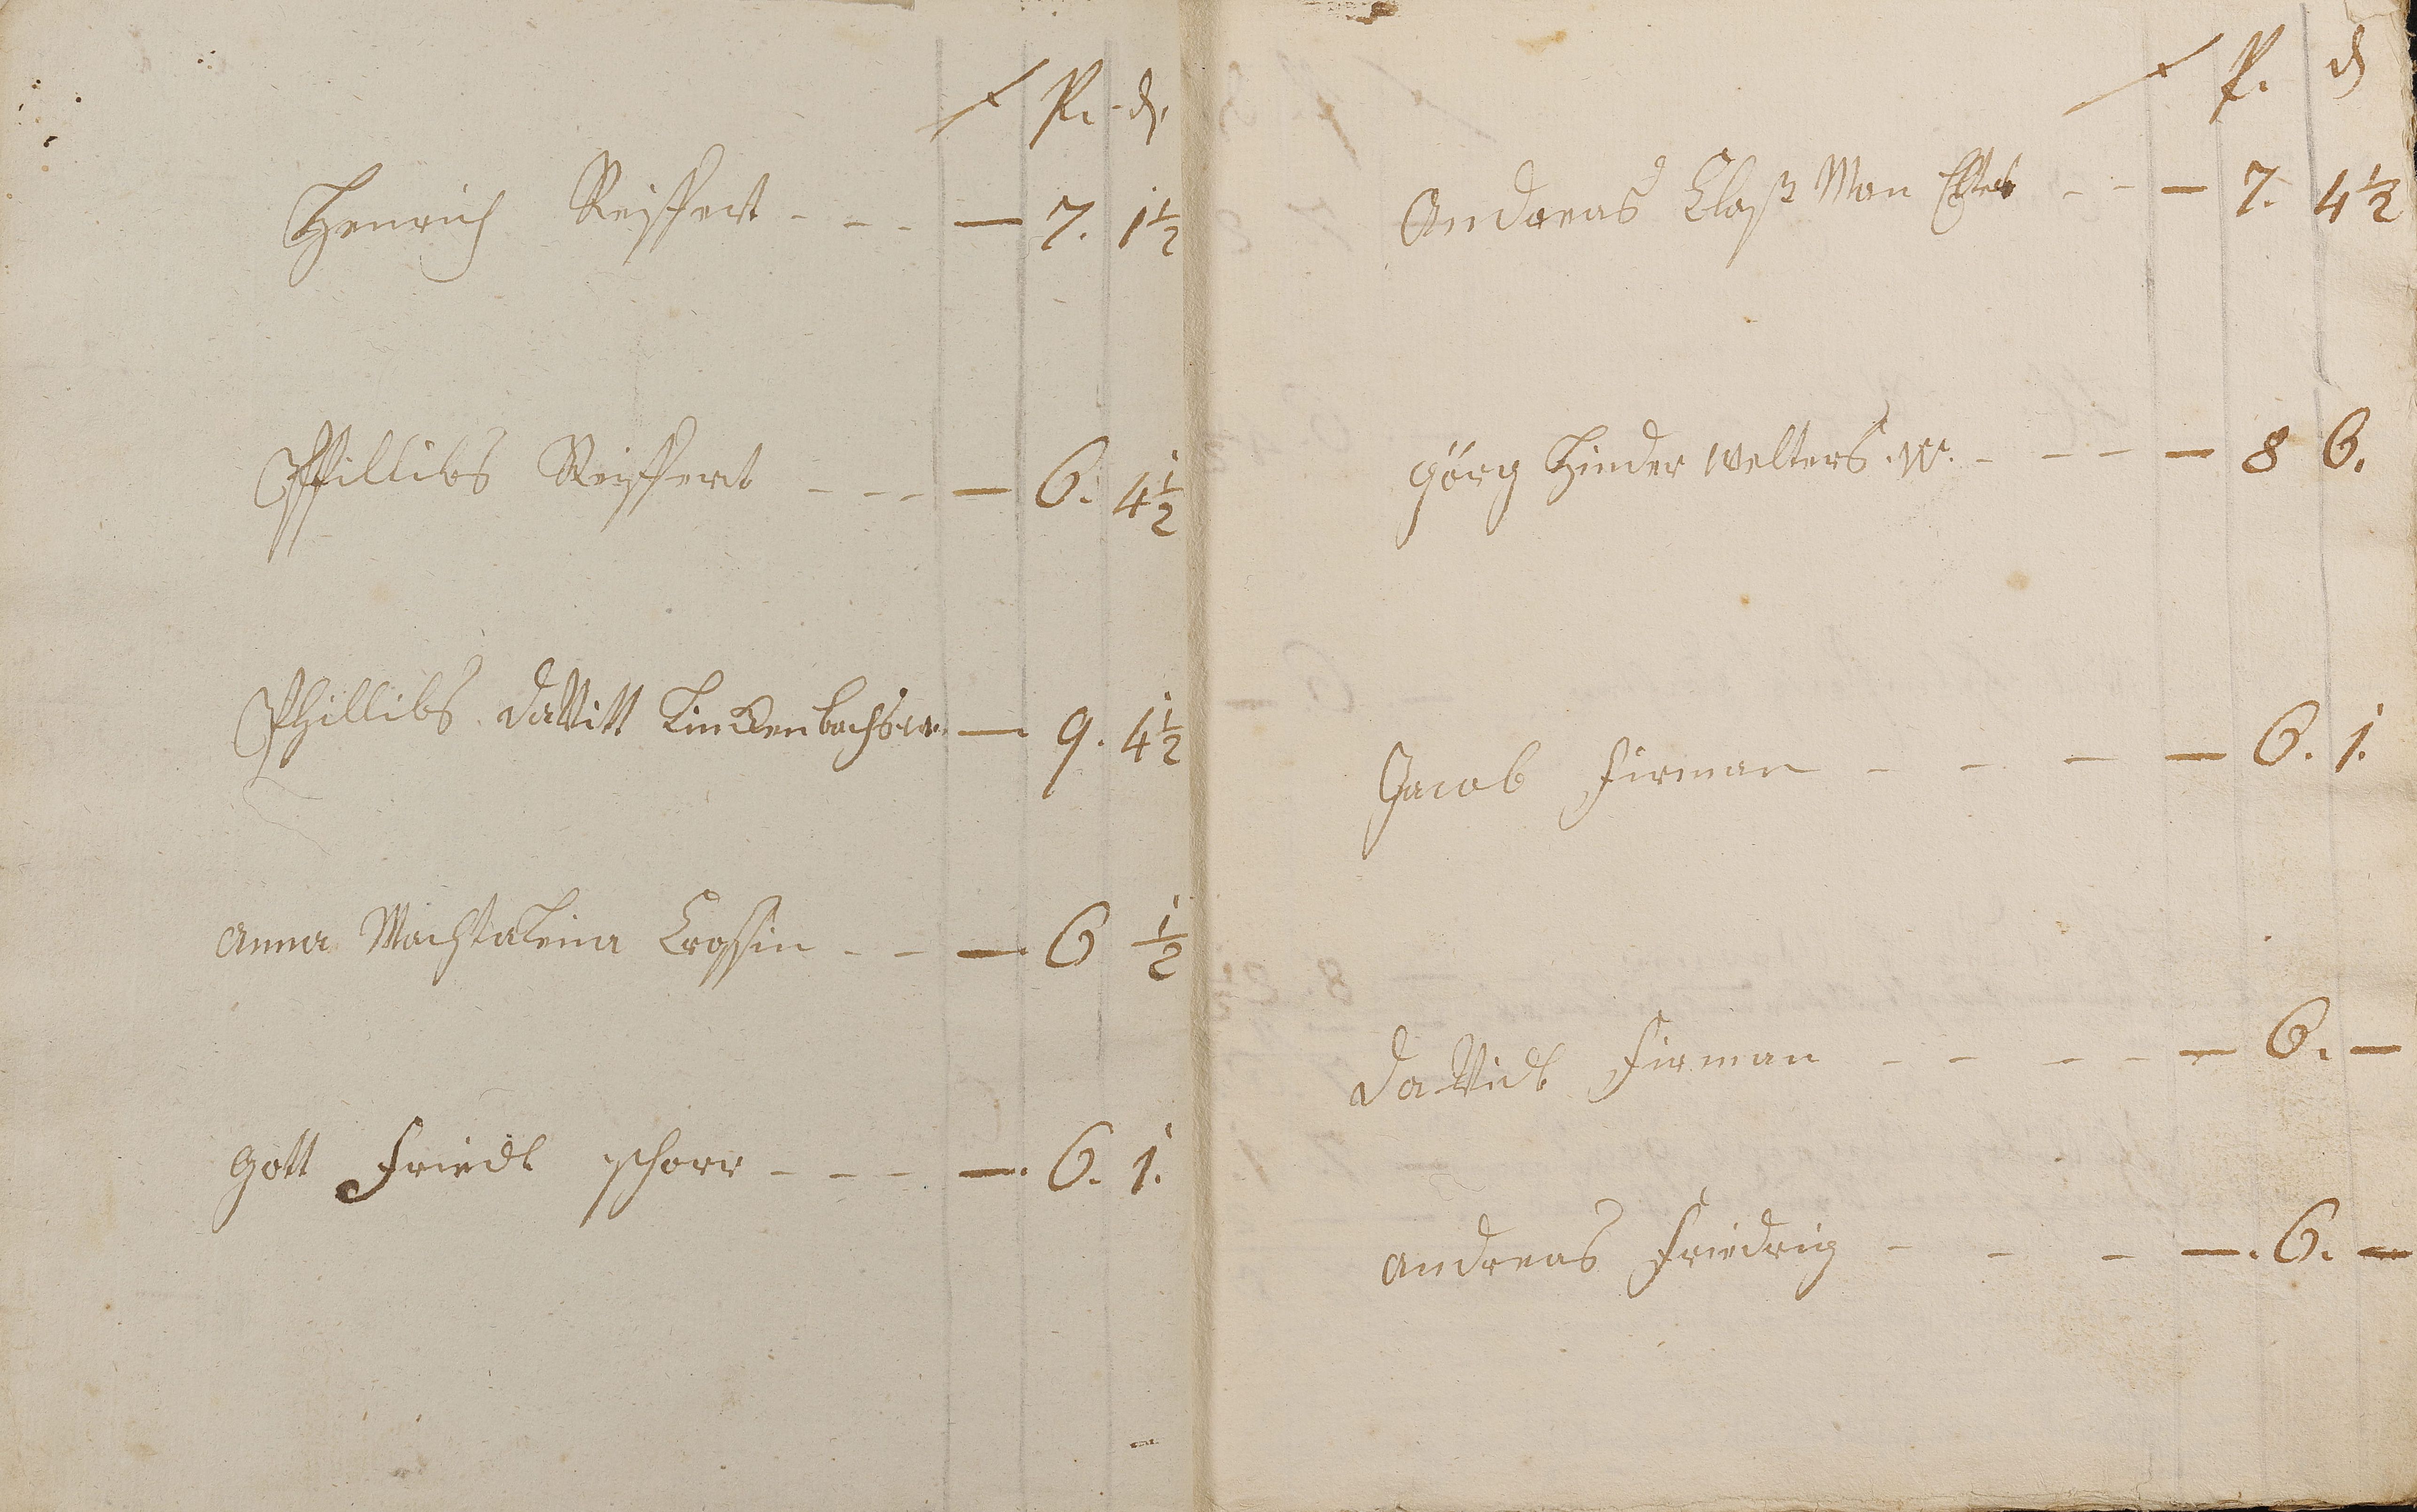 f P. d.
Henrich Reiffert - - - — 7. 1½
Phillibs Reiffert - - - — 6. 4½
Phillibs davitt Linckenbachs w. — 9. 4½
anna Machtalena Crossin - - — 6 ½
Gott Friedt schorr - - - — 6. 1.
f P. d
Andreas Claß Man - - — 7. 4½
Görg Hinder welters. W. - - - — 8 6.
Jacob Firman - - - — 6. 1.
davidt Firman - - - - — 6. —
andreas Friedrig - - - —. 6. —